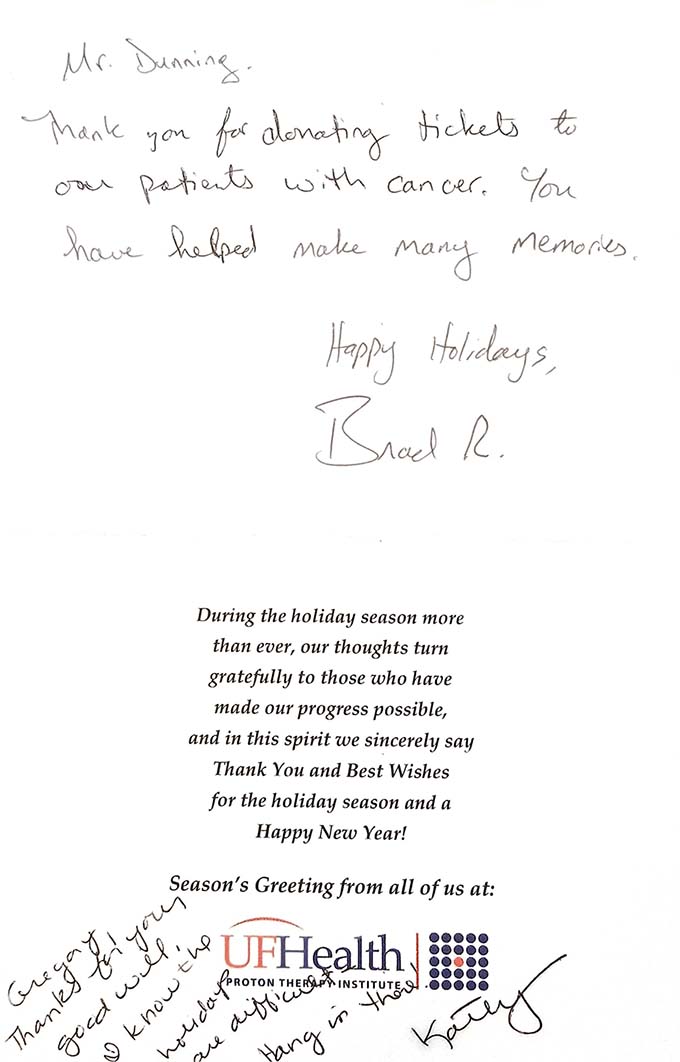 Mr. Dunning.
Thank you for donating tickets to
our patients with cancer. You
have helped make many memories.
Happy Holidays,
Brad R.
During the holiday season more
than ever, our thoughts turn
gratefully to those who have
made our progress possible,
and in this spirit we sincerely say
Thank You and Best Wishes
for the holiday season and a
Happy New Year!
Season's Greeting from all of us at:
UFHealth
PROTON THERAPY INSTITUTE
Gregory
Thanks for your
good will.
I know the
holidays
are difficult.
Hang in there!
Kathy